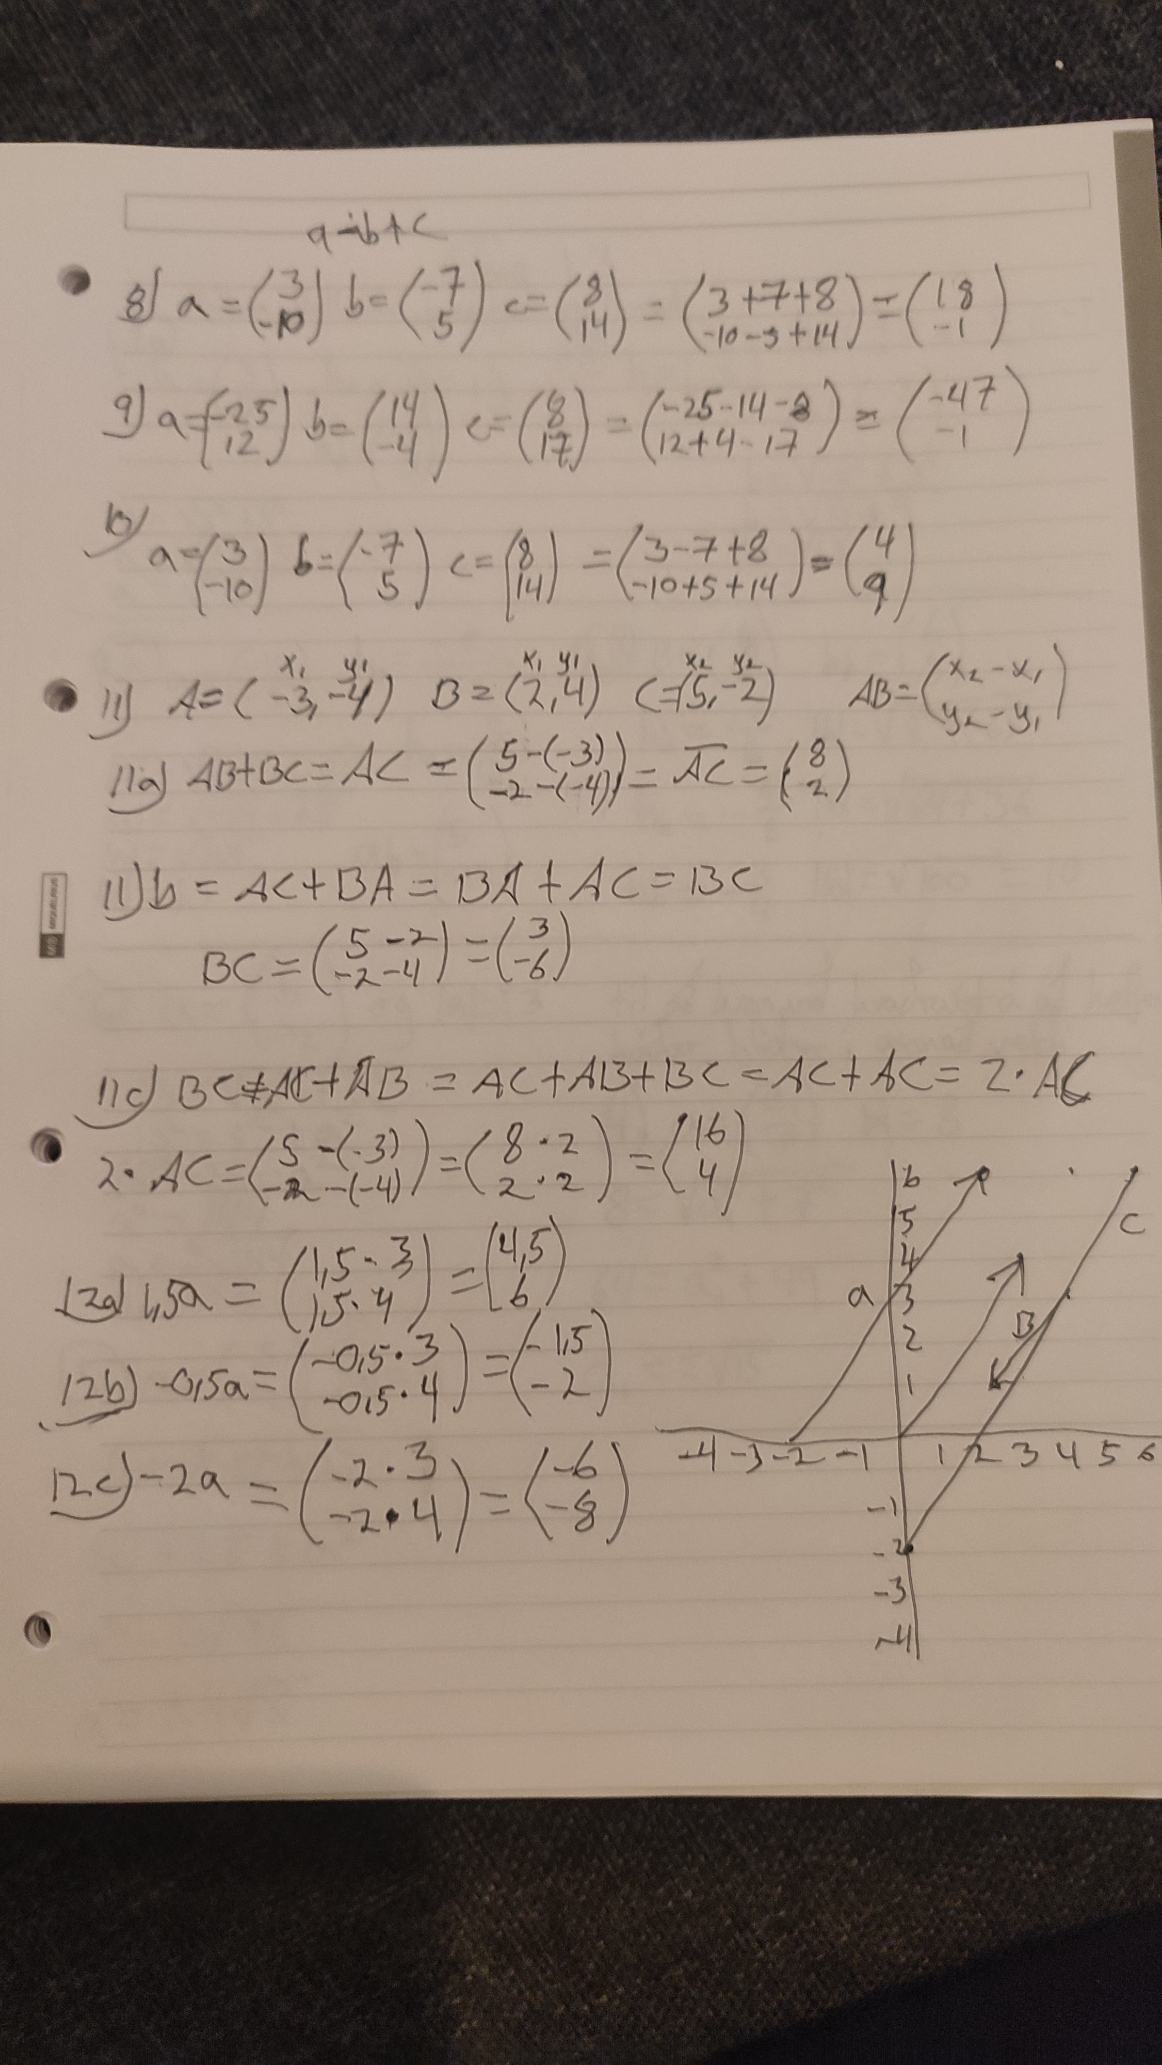 a-b+c
8) a = (3 -10) b = (-7 5) c = (8 14) = (3+7+8 -10-5+14) = (18 -1)
9) a = (-25 12) b = (14 -4) c = (8 17) = (-25-14-8 12+4-17) = (-47 -1)
10) a = (3 -10) b = (-7 5) c = (8 14) = (3-7+8 -10+5+14) = (4 9)
x₁ y₁ x₁ y₁ x₂ y₂
11) A = (-3, -4) B = (2, 4) C = (5, -2) AB = (x₂-x₁ y₂-y₁)
11a) AB+BC = AC = (5-(-3) -2-(-4)) = AC = (8 2)
11) b = AC+BA = BA+AC = BC
BC = (5-2 -2-4) = (3 -6)
11c) BC+AC+AB = AC+AB+BC = AC+AC = 2·AC
2·AC = (5-(-3) -2-(-4)) = (8·2 2·2) = (16 4)
12a) 1,5a = (1,5·3 1,5·4) = (4,5 6)
12b) -0,5a = (-0,5·3 -0,5·4) = (-1,5 -2)
12c) -2a = (-2·3 -2·4) = (-6 -8)
6
5
C
4
a 3
B
2
1
-4 -3 -2 -1 1 2 3 4 5 6
-1
-2
-3
-4